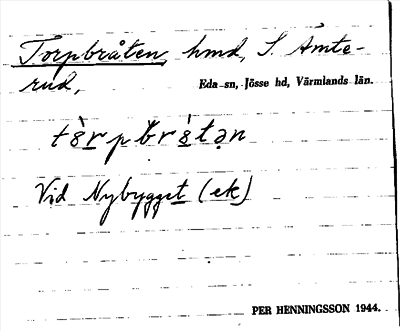 Torpbråten, hmd, S. Ämte-
rud, Eda sn, Jösse hd, Värmlands län.
Vid Nybygget (ek)
PER HENNINGSSON 1944.